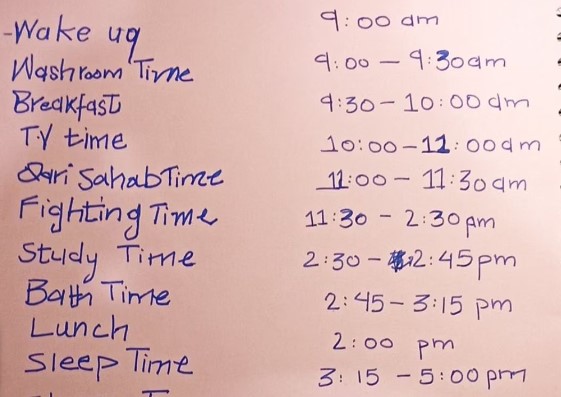 -Wake up 9:00 am
Washroom Time 9:00 – 9:30am
Breakfast 9:30 – 10:00 am
T.V time 10:00 – 11:00am
Qari Sahab Time 11:00 – 11:30am
Fighting Time 11:30 – 2:30pm
Study Time 2:30 – 2:45pm
Bath Time 2:45 – 3:15 pm
Lunch 2:00 pm
Sleep Time 3:15 – 5:00pm